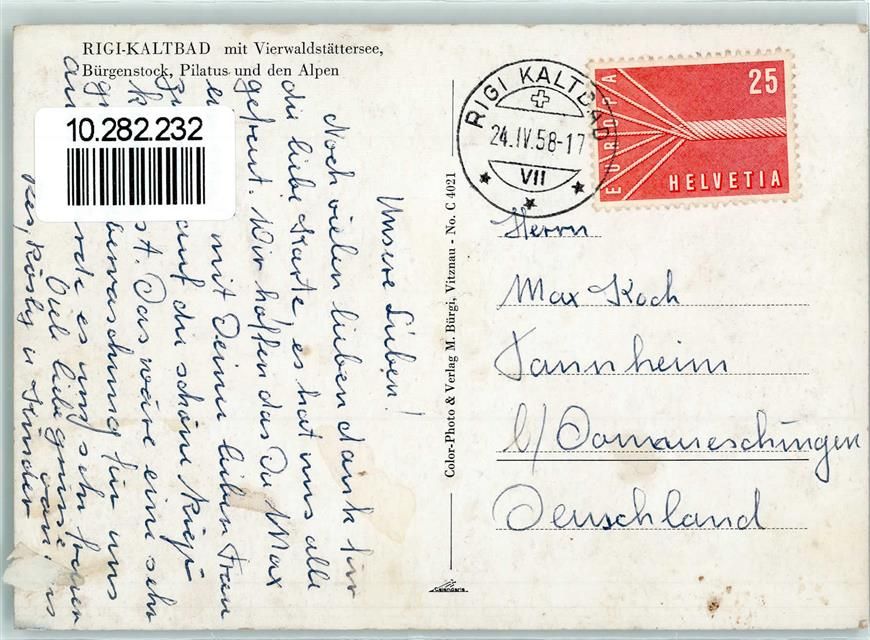 RIGI-KALTBAD mit Vierwaldstättersee,
Bürgenstock, Pilatus und den Alpen
10.282.232
Unsere Lieben!
Noch vielen lieben dank für
die liebe Karte, es hat uns alle
gefreut. Wir hoffen das Du Max
mit Deiner lieben Frau
auf die schöne Rigi
Das wäre eine sehr
für uns
es uns sehr freuen
Viele liebe grüsse von uns
Rösly u Kinder
Color-Photo & Verlag M. Bürgi, Vitznau - No. C 4021
RIGI KALTBAD
24.IV.58-17
VII
EUROPA
25
HELVETIA
Herrn
Max Koch
Tannheim
b/ Donaueschingen
Deuschland
Calendaria